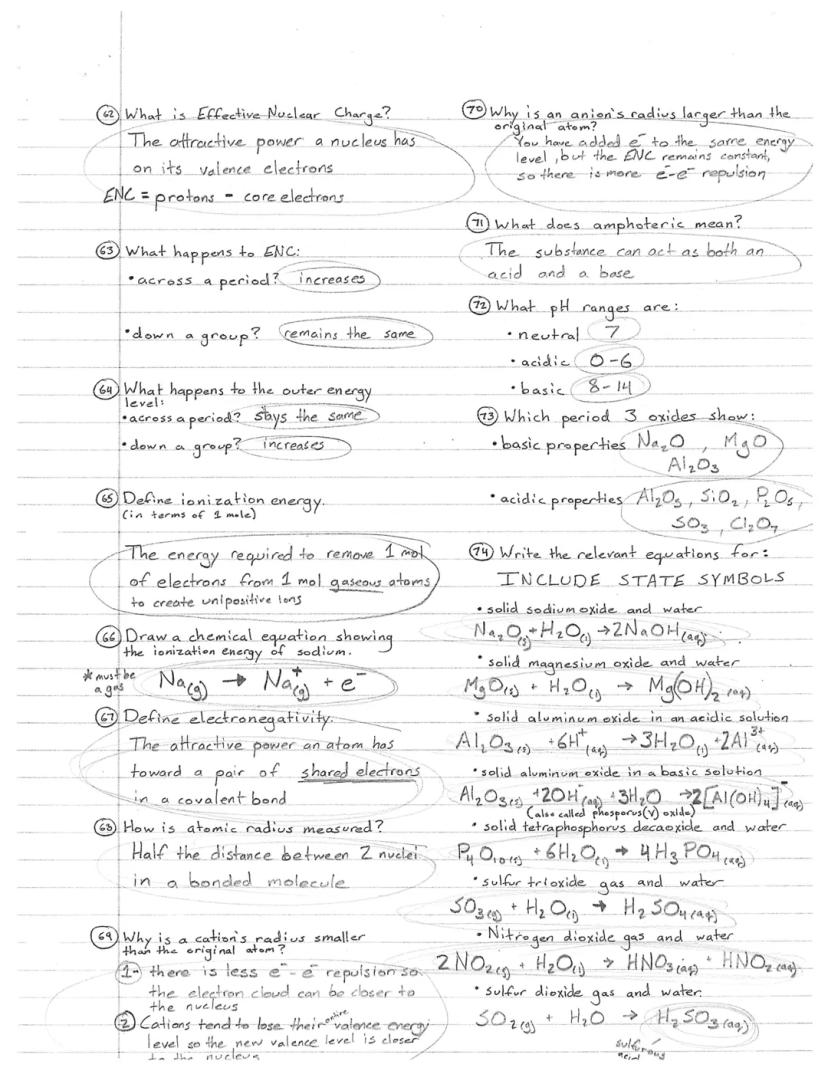 62 What is Effective Nuclear Charge?
The attractive power a nucleus has
on its valence electrons
ENC = protons - core electrons
63 What happens to ENC:
• across a period? increases
• down a group? remains the same
64 What happens to the outer energy
level:
• across a period? stays the same
• down a group? increases
65 Define ionization energy.
(in terms of 1 mole)
The energy required to remove 1 mol
of electrons from 1 mol gaseous atoms
to create unipositive ions
66 Draw a chemical equation showing
the ionization energy of sodium.
* must be
a gas
Na(g) → Na⁺(g) + e⁻
67 Define electronegativity.
The attractive power an atom has
toward a pair of shared electrons
in a covalent bond
68 How is atomic radius measured?
Half the distance between 2 nuclei
in a bonded molecule
69 Why is a cation's radius smaller
than the original atom?
1- there is less e⁻-e⁻ repulsion so
the electron cloud can be closer to
the nucleus
2 Cations tend to lose their entire valence energy
level so the new valence level is closer
to the nucleus
70 Why is an anion's radius larger than the
original atom?
You have added e⁻ to the same energy
level, but the ENC remains constant,
so there is more e⁻-e⁻ repulsion
71 What does amphoteric mean?
The substance can act as both an
acid and a base
72 What pH ranges are:
• neutral 7
• acidic 0-6
• basic 8-14
73 Which period 3 oxides show:
• basic properties Na₂O, MgO
Al₂O₃
• acidic properties Al₂O₃, SiO₂, P₂O₅,
SO₃, Cl₂O₇
74 Write the relevant equations for:
INCLUDE STATE SYMBOLS
• solid sodium oxide and water
Na₂O(s) + H₂O(l) → 2NaOH(aq)
• solid magnesium oxide and water
MgO(s) + H₂O(l) → Mg(OH)₂(aq)
• solid aluminum oxide in an acidic solution
Al₂O₃(s) + 6H⁺(aq) → 3H₂O(l) + 2Al³⁺(aq)
• solid aluminum oxide in a basic solution
Al₂O₃(s) + 2OH⁻(aq) + 3H₂O → 2[Al(OH)₄]⁻(aq)
(also called phosporus(V) oxide)
• solid tetraphosphorus decaoxide and water
P₄O₁₀(s) + 6H₂O(l) → 4H₃PO₄(aq)
• sulfur trioxide gas and water
SO₃(g) + H₂O(l) → H₂SO₄(aq)
• Nitrogen dioxide gas and water
2NO₂(g) + H₂O(l) → HNO₃(aq) + HNO₂(aq)
• sulfur dioxide gas and water.
SO₂(g) + H₂O → H₂SO₃(aq)
sulfurous
acid